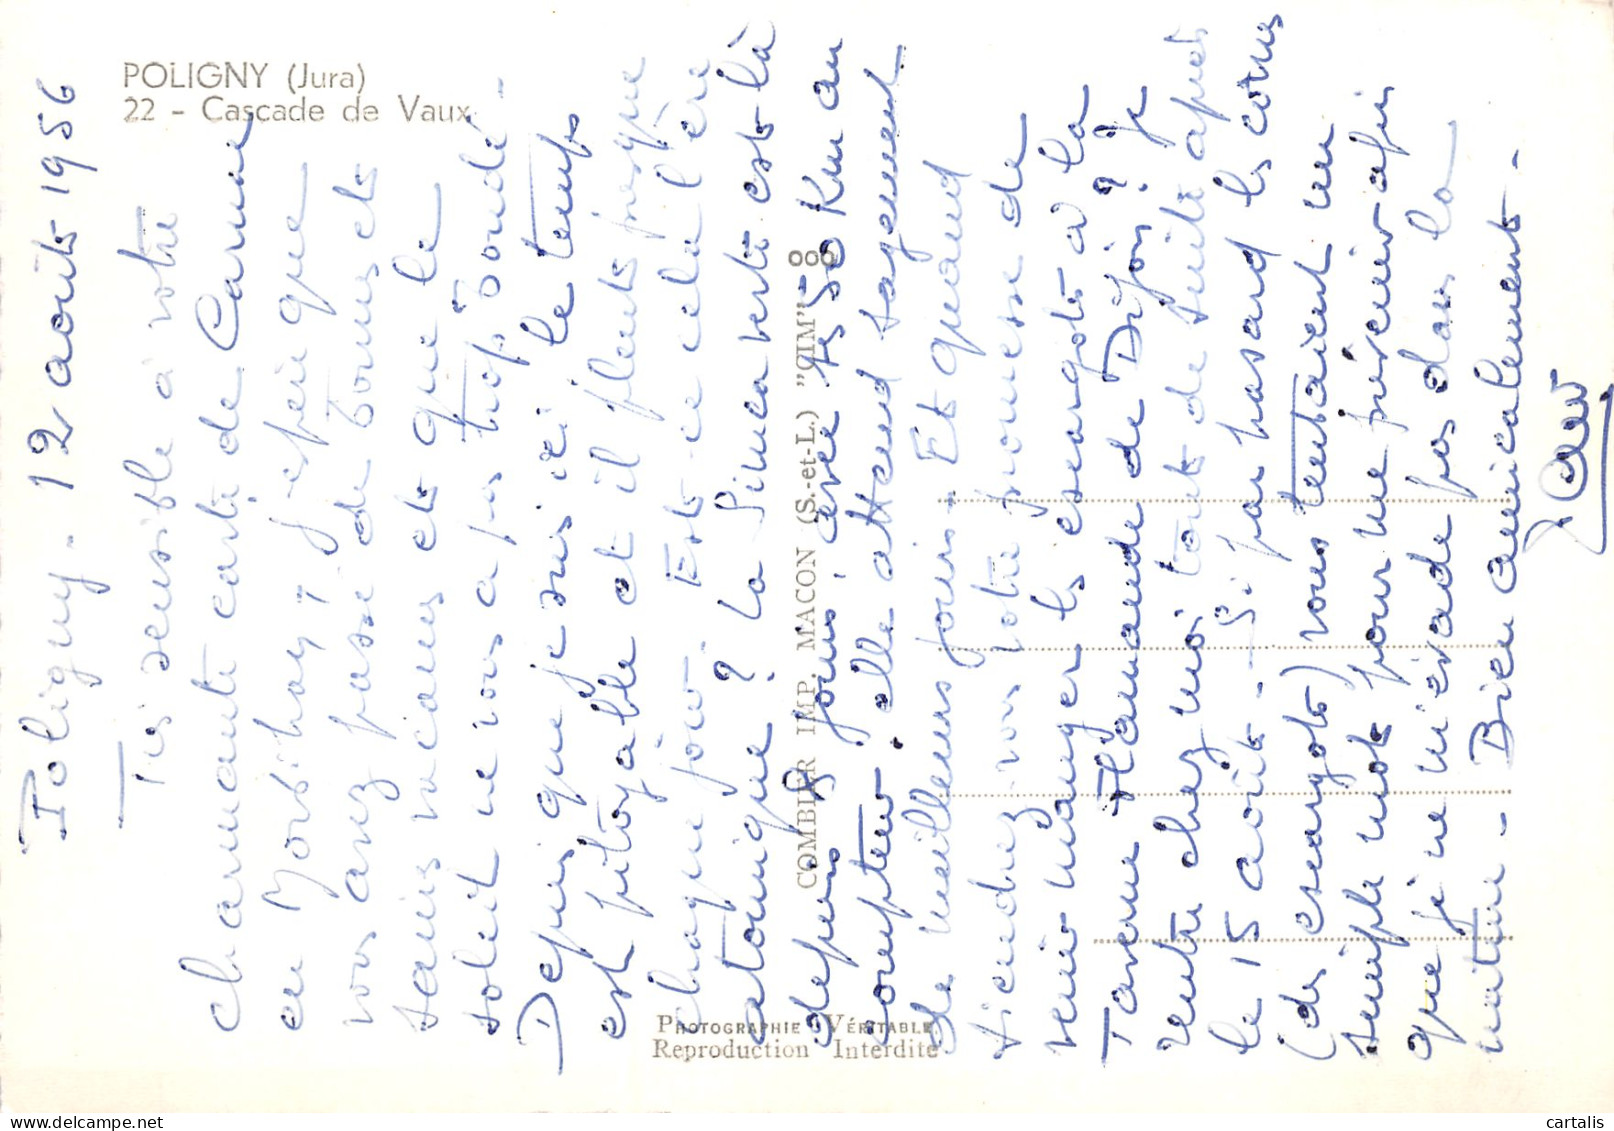 POLIGNY (Jura)
22 - Cascade de Vaux
Poligny - 12 août 1956
Très sensible à votre
charmante carte de Carnac
en Morbihan, j'espère que
vous avez passé de bonnes et
saines vacances et que le
soleil ne vous a pas trop boudé -
Depuis que je suis ici le temps
est pitoyable et il pleut presque
chaque jour. Est-ce cela l'ère
atomique ? La Simca verte est là
depuis 8 jours, avec 450 Km au
compteur, elle attend sagement
de meilleurs jours - Et quand
tiendrez vous votre promesse de
venir manger les escargots à la
Taverne Flamande de Dijon ? Je
rentre chez moi tout de suite après
le 15 août - Si par hasard les cornus
(des escargots) vous tentaient un
simple mot pour me prévenir afin
que je ne m'évade pas dans la
nature - Bien amicalement -
COMBIER IMP. MACON (S.-et-L.) "CIM"
PHOTOGRAPHIE VÉRITABLE
Reproduction Interdite
cartalis